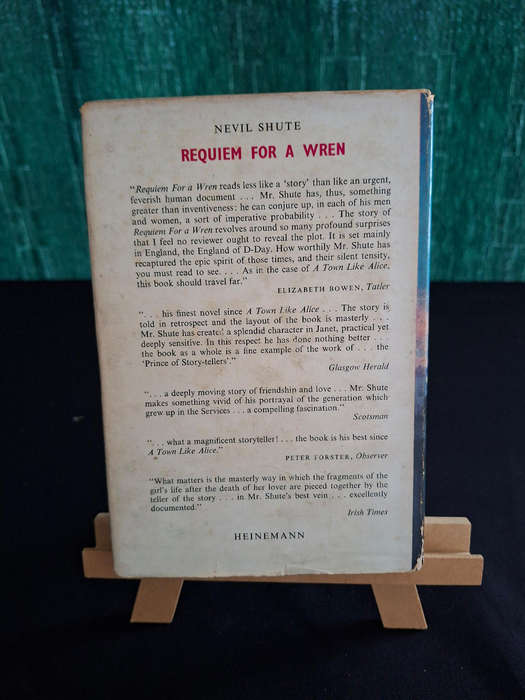 NEVIL SHUTE
REQUIEM FOR A WREN
"Requiem For a Wren reads less like a 'story' than like an urgent,
feverish human document . . . Mr. Shute has, thus, something
greater than inventiveness: he can conjure up, in each of his men
and women, a sort of imperative probability . . . The story of
Requiem For a Wren revolves around so many profound surprises
that I feel no reviewer ought to reveal the plot. It is set mainly
in England, the England of D-Day. How worthily Mr. Shute has
recaptured the epic spirit of those times, and their silent tensity,
you must read to see. . . . As in the case of A Town Like Alice,
this book should travel far."
ELIZABETH BOWEN, Tatler
". . . his finest novel since A Town Like Alice . . . The story is
told in retrospect and the layout of the book is masterly . . .
Mr. Shute has created a splendid character in Janet, practical yet
deeply sensitive. In this respect he has done nothing better . . .
the book as a whole is a fine example of the work of . . . the
'Prince of Story-tellers'."
Glasgow Herald
". . . a deeply moving story of friendship and love . . . Mr. Shute
makes something vivid of his portrayal of the generation which
grew up in the Services . . . a compelling fascination."
Scotsman
". . . what a magnificent storyteller! . . . the book is his best since
A Town Like Alice."
PETER FORSTER, Observer
"What matters is the masterly way in which the fragments of the
girl's life after the death of her lover are pieced together by the
teller of the story . . . in Mr. Shute's best vein . . . excellently
documented."
Irish Times
HEINEMANN